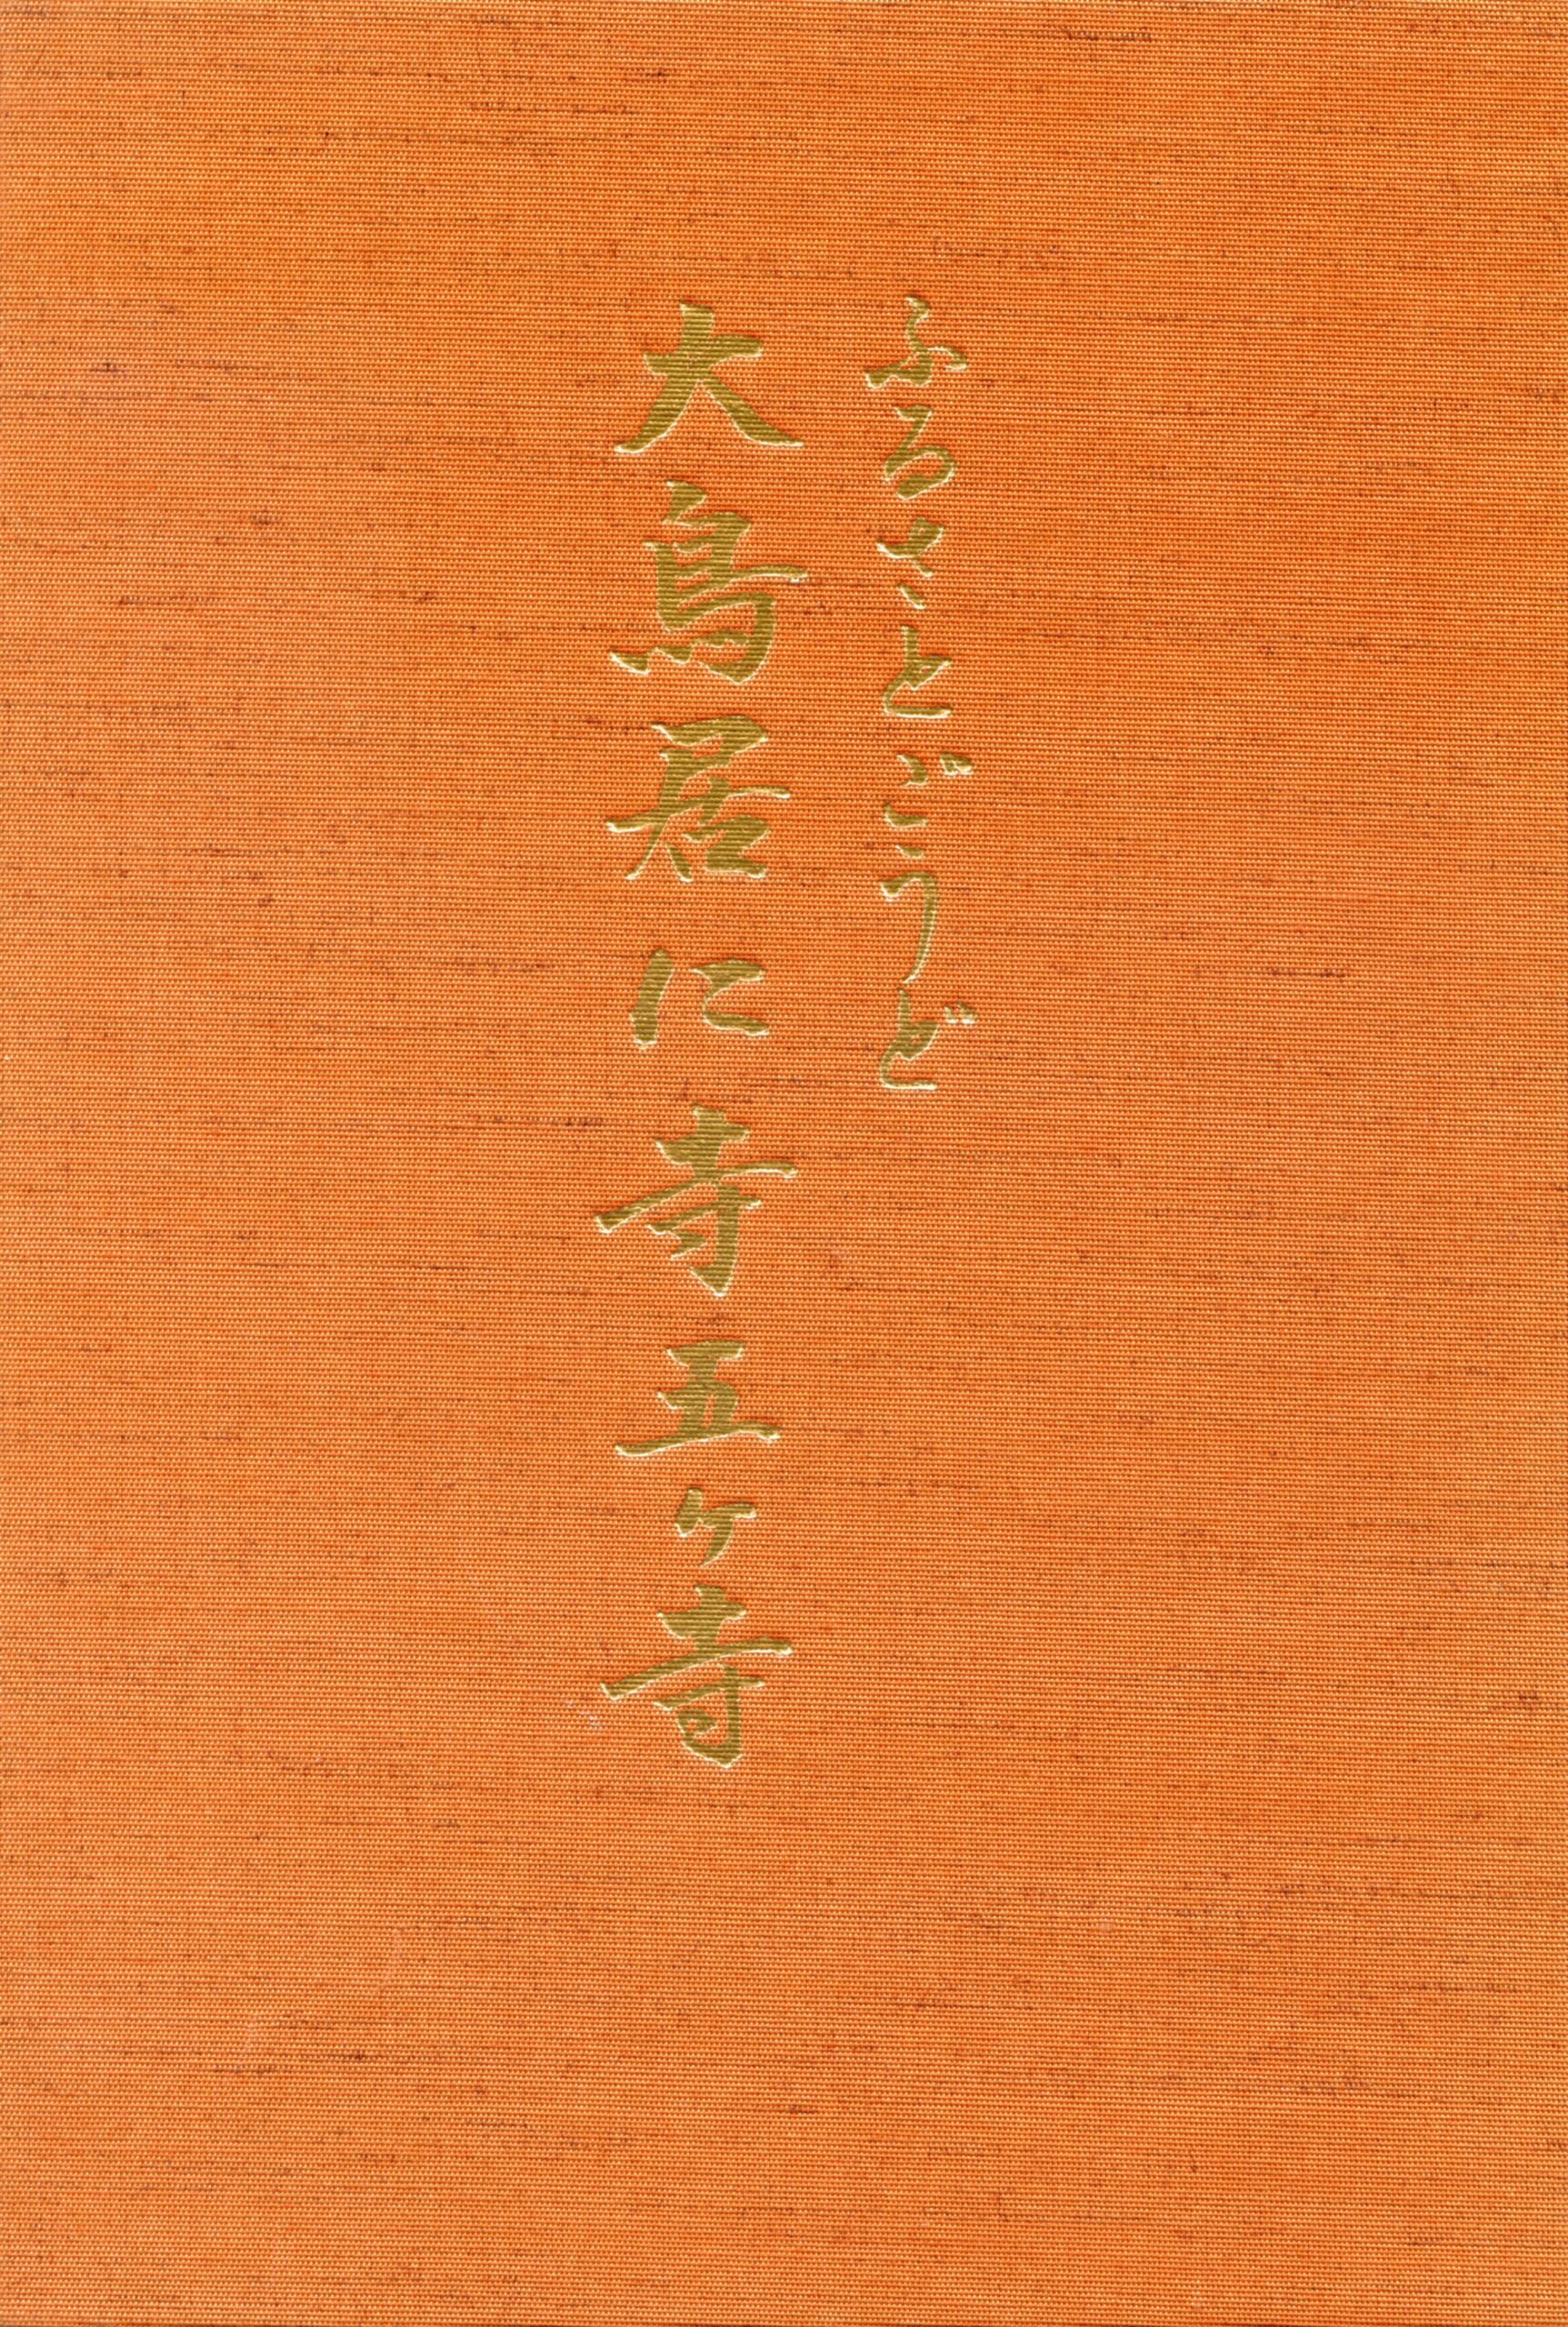 ふるさとごうど
大鳥居に寺五ヶ寺